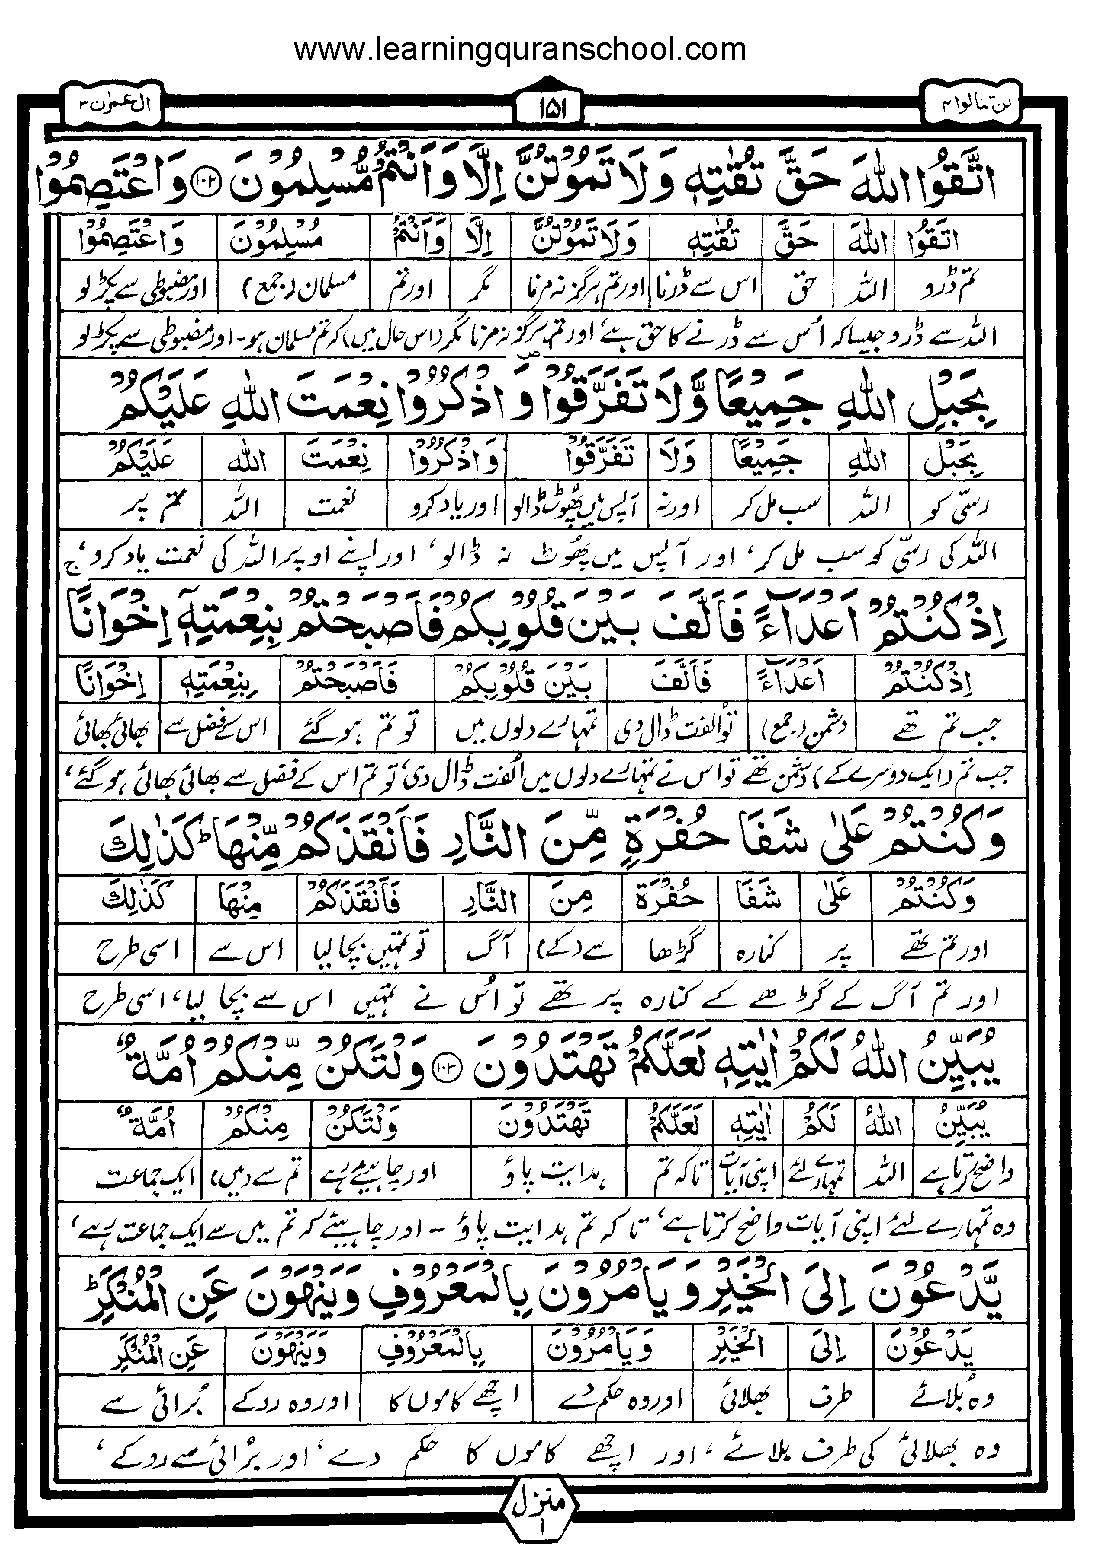 www.learningquranschool.com
لن تنالوا ۴ ۱۵۱ اٰل عمرٰن ۳
اتَّقُوا اللّٰهَ حَقَّ تُقٰتِهٖ وَلَا تَمُوْتُنَّ اِلَّا وَاَنْتُمْ مُّسْلِمُوْنَ ۝۱۰۲ وَاعْتَصِمُوْا
اتَّقُوا اللّٰهَ حَقَّ تُقٰتِهٖ وَلَا تَمُوْتُنَّ اِلَّا وَاَنْتُمْ مُسْلِمُوْنَ وَاعْتَصِمُوْا
تم ڈرو اللہ حق اس سے ڈرنا اور تم ہرگز نہ مرنا مگر اور تم مسلمان (جمع) اور مضبوطی سے پکڑ لو
اللہ سے ڈرو جیسا کہ اُس سے ڈرنے کا حق ہے، اور تم ہرگز نہ مرنا مگر (اس حال میں) کہ تم مسلمان ہو۔ اور مضبوطی سے پکڑ لو
بِحَبْلِ اللّٰهِ جَمِيْعًا وَّلَا تَفَرَّقُوْا ۪ وَاذْكُرُوْا نِعْمَتَ اللّٰهِ عَلَيْكُمْ
بِحَبْلِ اللّٰهِ جَمِيْعًا وَلَا تَفَرَّقُوْا وَاذْكُرُوْا نِعْمَتَ اللّٰهِ عَلَيْكُمْ
رسّی کو اللہ سب مل کر اور نہ آپس میں پھوٹ ڈالو اور یاد کرو نعمت اللہ تم پر
اللہ کی رسّی کو سب مل کر، اور آپس میں پھُوٹ نہ ڈالو، اور اپنے اوپر اللہ کی نعمت یاد کرو،
اِذْ كُنْتُمْ اَعْدَآءً فَاَلَّفَ بَيْنَ قُلُوْبِكُمْ فَاَصْبَحْتُمْ بِنِعْمَتِهٖٓ اِخْوَانًا
اِذْ كُنْتُمْ اَعْدَآءً فَاَلَّفَ بَيْنَ قُلُوْبِكُمْ فَاَصْبَحْتُمْ بِنِعْمَتِهٖ اِخْوَانًا
جب تم تھے دشمن (جمع) تو اُلفت ڈال دی تمہارے دلوں میں تو تم ہو گئے اس کے فضل سے بھائی بھائی
جب تم (ایک دوسرے کے) دشمن تھے تو اس نے تمہارے دلوں میں اُلفت ڈال دی، تو تم اس کے فضل سے بھائی بھائی ہو گئے،
وَكُنْتُمْ عَلٰى شَفَا حُفْرَةٍ مِّنَ النَّارِ فَاَنْقَذَكُمْ مِّنْهَا ؕ كَذٰلِكَ
وَكُنْتُمْ عَلٰى شَفَا حُفْرَةٍ مِنَ النَّارِ فَاَنْقَذَكُمْ مِنْهَا كَذٰلِكَ
اور تم تھے پر کنارہ گڑھا سے (کے) آگ تو تمہیں بچا لیا اس سے اسی طرح
اور تم آگ کے گڑھے کے کنارہ پر تھے تو اُس نے تمہیں اس سے بچا لیا، اسی طرح
يُبَيِّنُ اللّٰهُ لَكُمْ اٰيٰتِهٖ لَعَلَّكُمْ تَهْتَدُوْنَ ۝۱۰۳ وَلْتَكُنْ مِّنْكُمْ اُمَّةٌ
يُبَيِّنُ اللّٰهُ لَكُمْ اٰيٰتِهٖ لَعَلَّكُمْ تَهْتَدُوْنَ وَلْتَكُنْ مِنْكُمْ اُمَّةٌ
واضح کرتا ہے اللہ تمہارے لئے اپنی آیات تاکہ تم ہدایت پاؤ اور چاہیے رہے تم سے (میں) ایک جماعت
وہ تمہارے لئے اپنی آیات واضح کرتا ہے، تاکہ تم ہدایت پاؤ ۔ اور چاہیئے کہ تم میں سے ایک جماعت رہے،
يَّدْعُوْنَ اِلَى الْخَيْرِ وَيَاْمُرُوْنَ بِالْمَعْرُوْفِ وَيَنْهَوْنَ عَنِ الْمُنْكَرِ ؕ
يَدْعُوْنَ اِلَى الْخَيْرِ وَيَاْمُرُوْنَ بِالْمَعْرُوْفِ وَيَنْهَوْنَ عَنِ الْمُنْكَرِ
وہ بُلائے طرف بھلائی اور وہ حکم دے اچھے کاموں کا اور وہ روکے بُرائی سے
وہ بھلائی کی طرف بلائے، اور اچھے کاموں کا حکم دے، اور بُرائی سے روکے،
منزل ۱